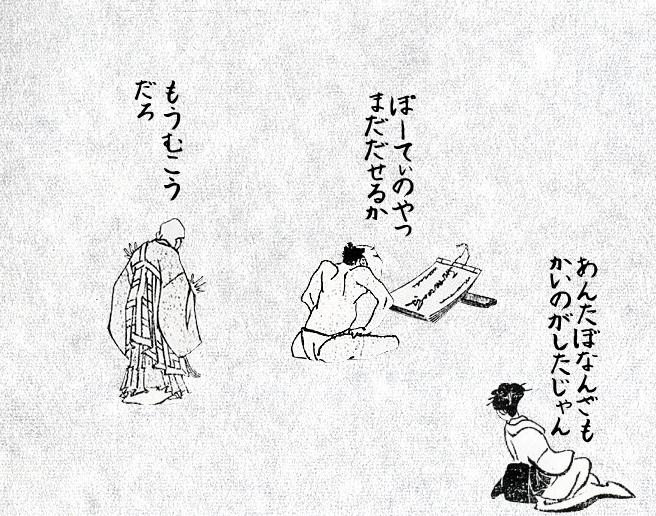 あんたぼなんども
かいのがしたじゃん
ぽーてぃのやつ
まだだせるか
もうむこう
だろ